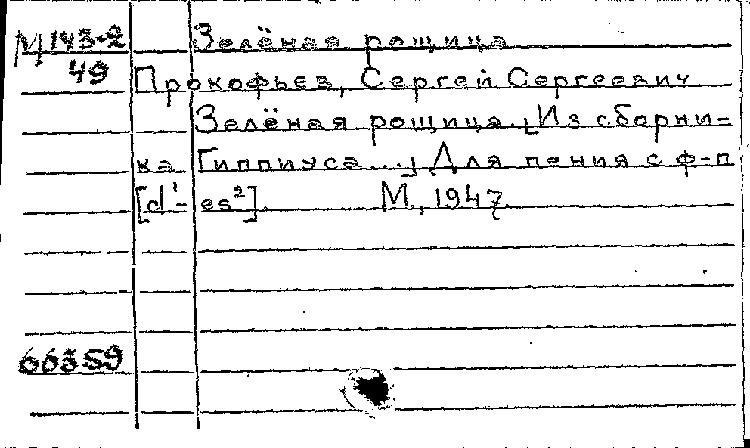 М 143-2 Зелёная рощица
49 Прокофьев, Сергей Сергеевич
Зелёная рощица. [Из сборни-
ка Гиппиуса...] Для пения с ф-п
[d¹-es²] М, 1947
66359